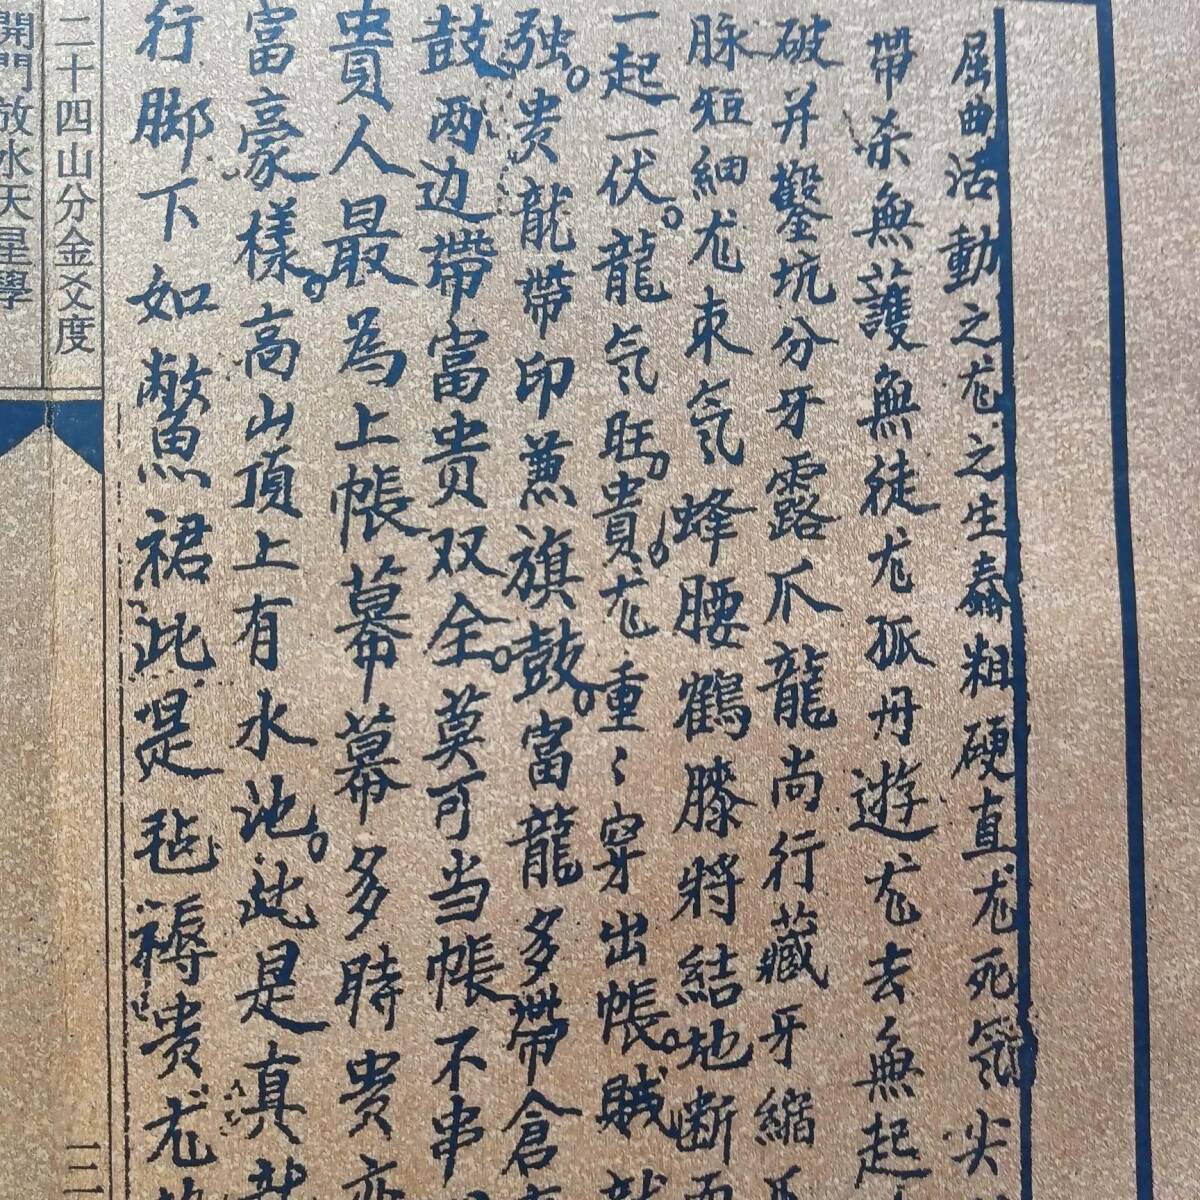 屈曲活動之尨之生春粗硬直尨死氣尖
帶杀無護無徒尨孤丹遊尨去無起
破并鑿坑分牙露爪龍尚行藏牙縮
脉短細尨束氣蜂腰鶴膝將結地断
一起一伏。龍气旺。貴尨重〻穿出帳。賊
强。贵龍帶印兼旗鼓。富龍多帶倉
鼓两边帶富贵双全。莫可当帳不串
貴人最為上帳幕幕多時贵
富豪樣。高山頂上有水池。此是真
行脚下如鱉裙此是毡褥贵尨
二十四山分金爻度
開門放水天星學